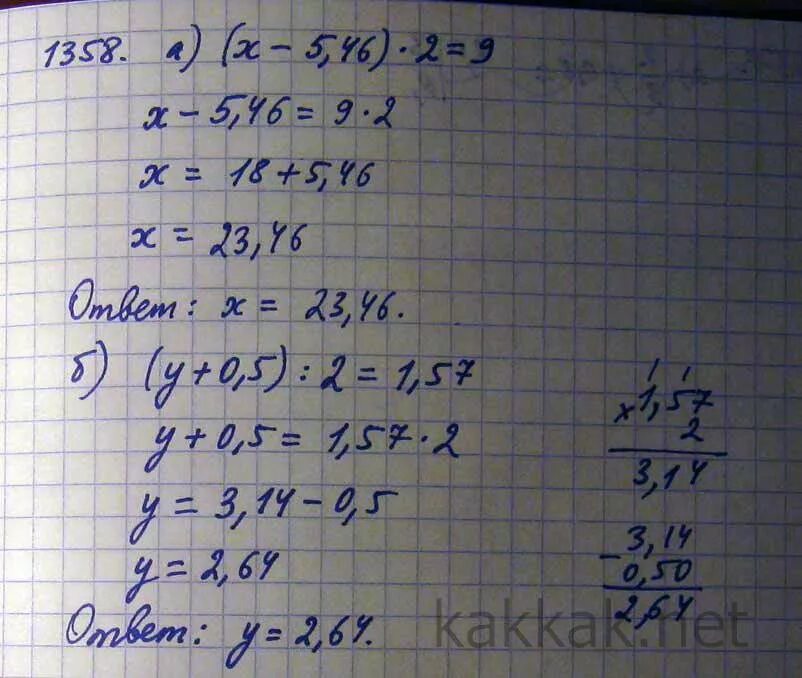 1358. а) (x - 5,46) · 2 = 9
x - 5,46 = 9 · 2
x = 18 + 5,46
x = 23,46
Ответ: x = 23,46.
б) (y + 0,5) : 2 = 1,57
y + 0,5 = 1,57 · 2
y = 3,14 - 0,5
y = 2,64
Ответ: y = 2,64.
1 1
× 1,57
2
3,14
- 3,14
0,50
2,64
kakkak.net